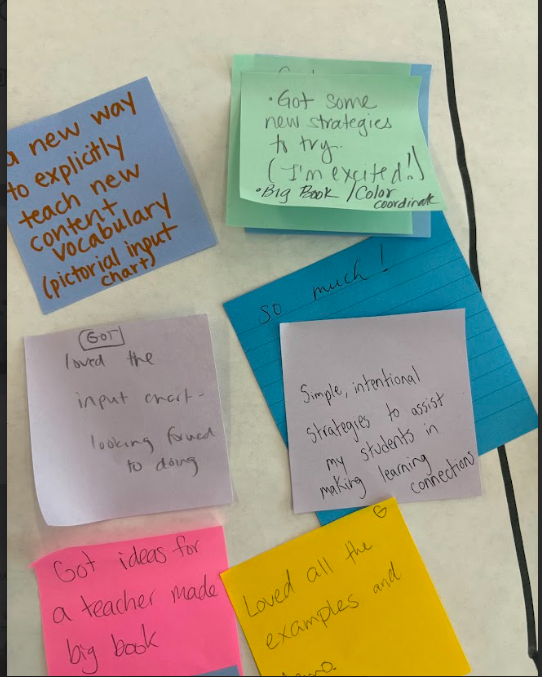 a new way
to explicitly
teach new
content
vocabulary
(pictorial input
chart)
• Got some
new strategies
to try.
(I'm excited!)
• Big Book / Color
coordinate
so much!
GOT
loved the
input chart -
looking forward
to doing
Simple, intentional
strategies to assist
my students in
making learning
connections
Got ideas for
a teacher made
big book
G
Loved all the
examples and